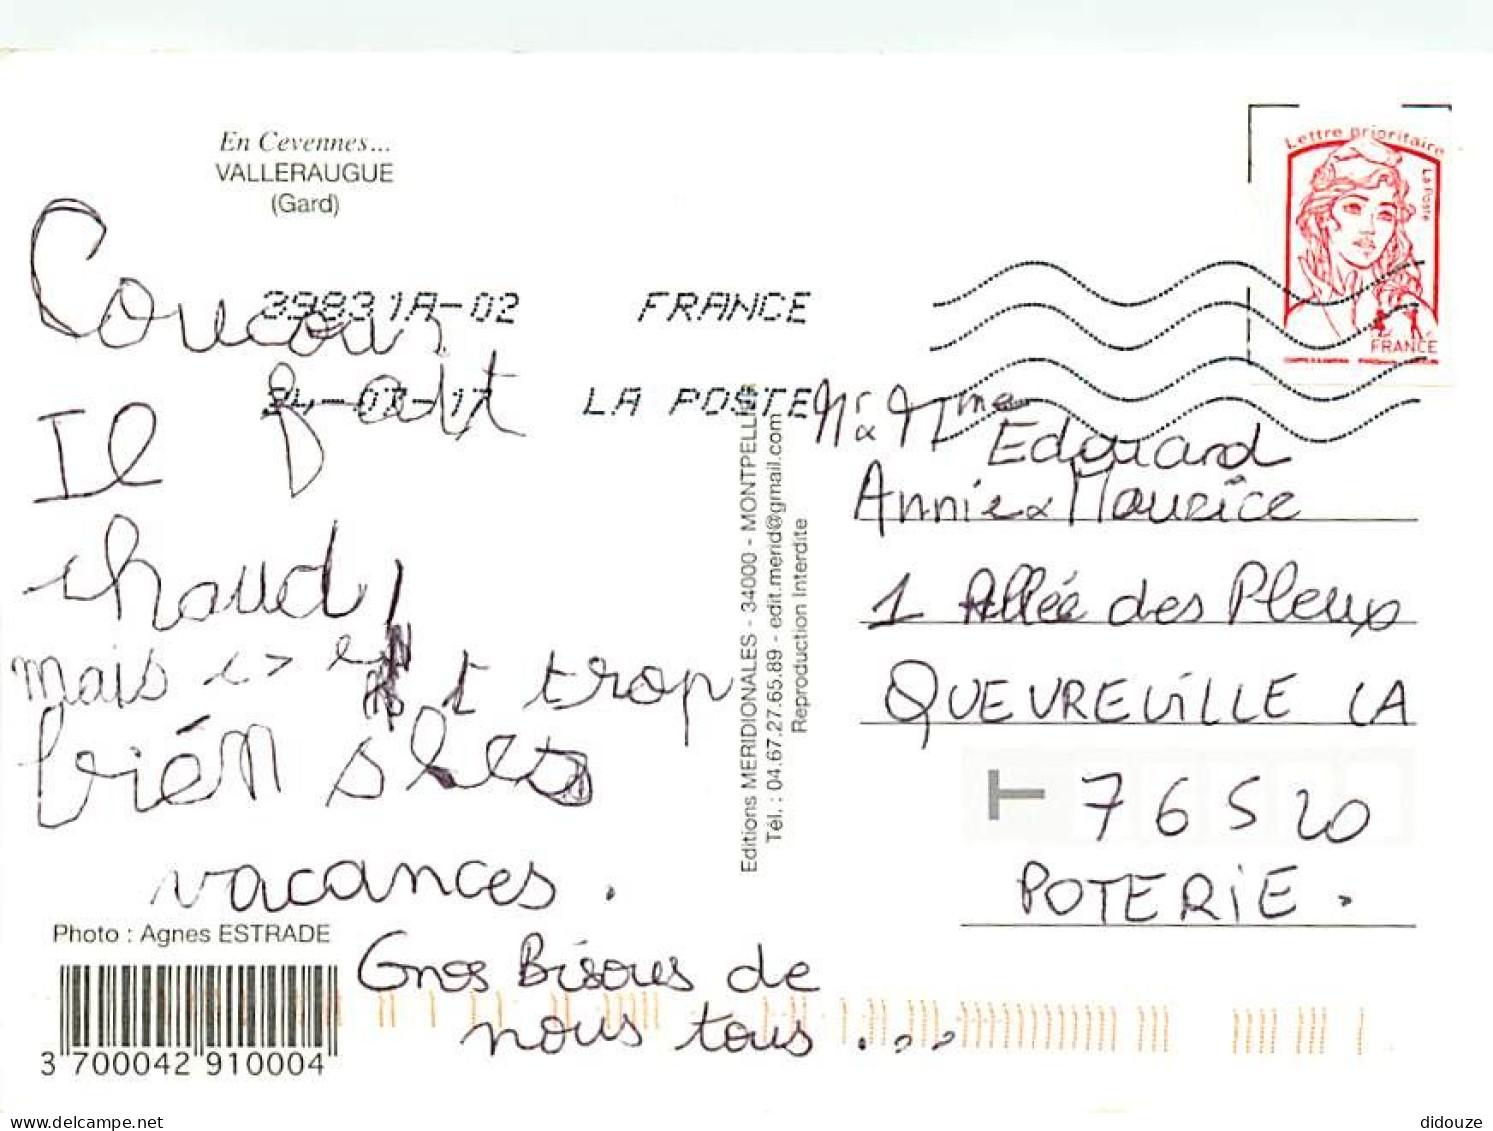 En Cevennes...
VALLERAUGUE
(Gard)
Coucou,
Il fait
chaud,
mais c'est trop
bién sles
vacances.
Gros Bisous de
nous tous ...
Photo : Agnes ESTRADE
3 700042 910004
39831A-02 FRANCE
24-07-17 LA POSTE
Editions MERIDIONALES - 34000 - MONTPELLIER
Tél. : 04.67.27.65.89 - edit.merid@gmail.com
Reproduction Interdite
Lettre prioritaire
La Poste
FRANCE
Mr & Mme Edouard
Annie & Maurice
1 Allée des Pleux
QUEVREVILLE LA
T 76520
POTERIE.
didouze